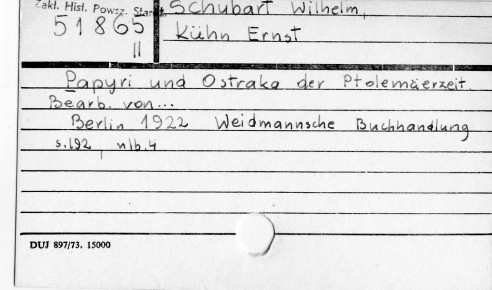 Zakł. Hist. Powsz. Staroż.
Schubart Wilhelm,
51865
II
Kühn Ernst
Papyri und Ostraka der Ptolemäerzeit.
Bearb. von...
Berlin 1922 Weidmannsche Buchhandlung
s.192, nlb.4
DUJ 897/73. 15000